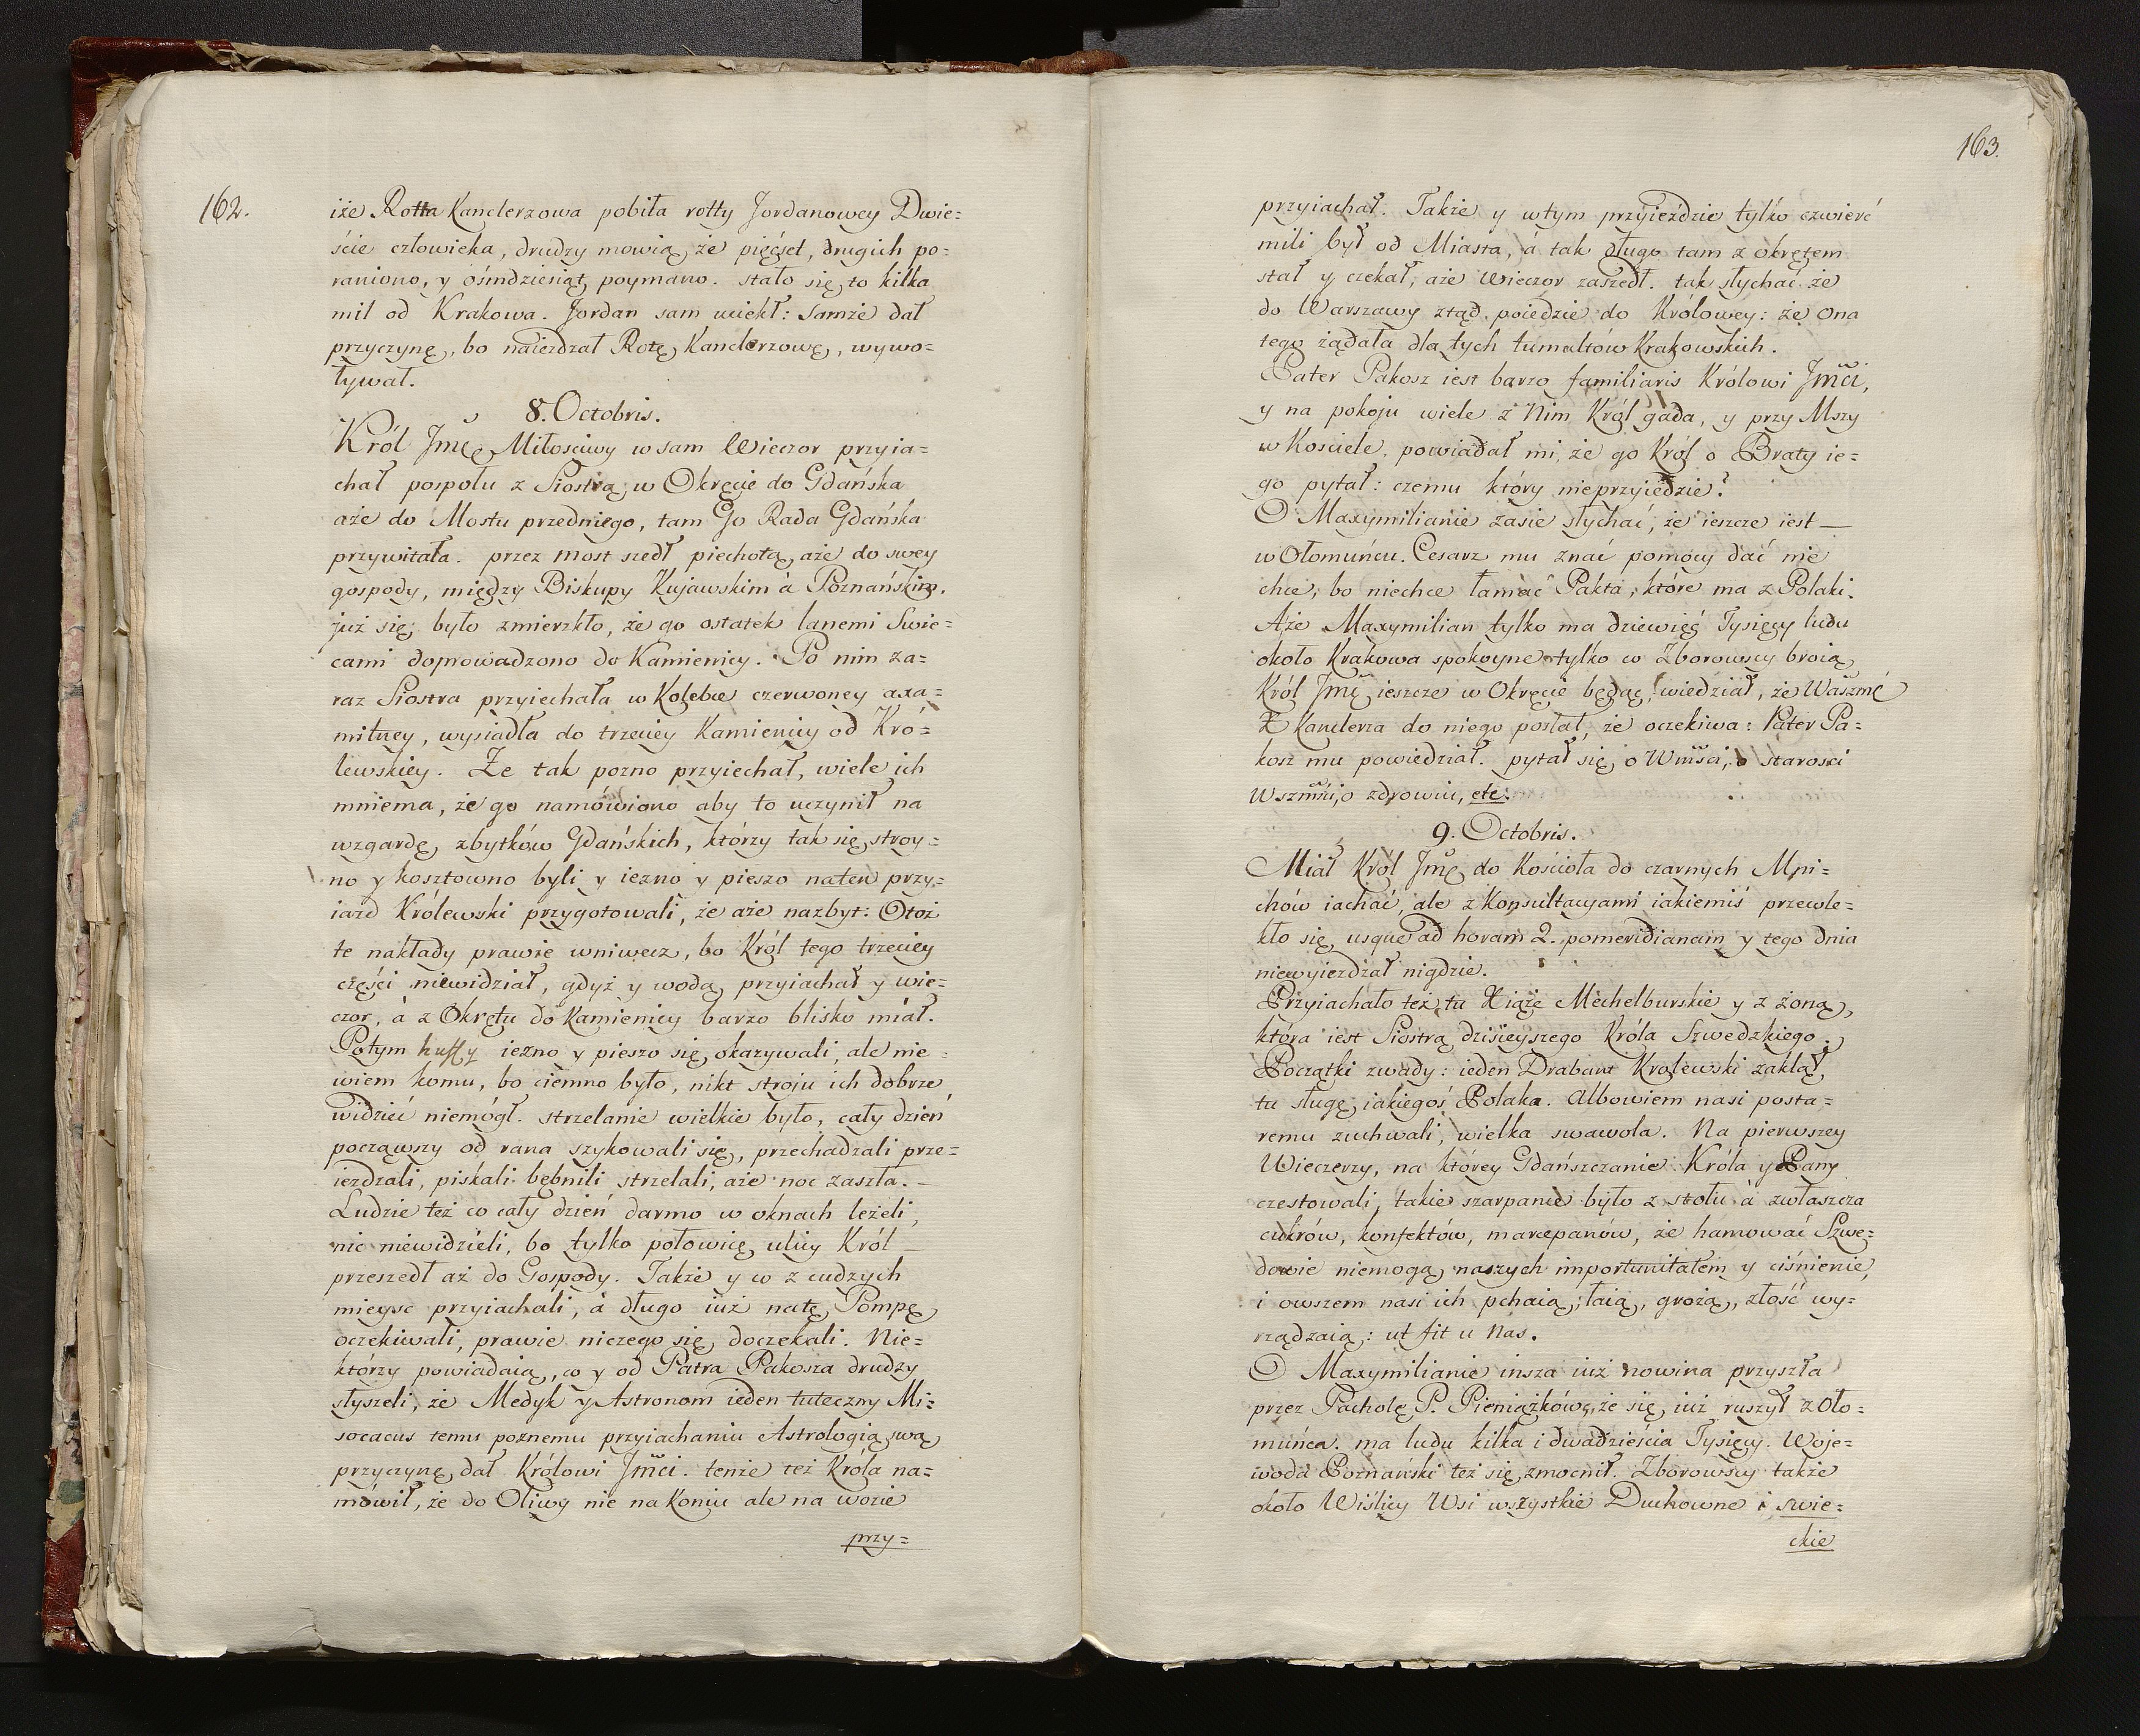 162.
iże Rotta Kanclerzowa pobiła rotty Jordanowey Dwie=
ście człowieka, drudzy mowią, że pięćset, drugich po=
raniono, y ośmdziesiąt poymano. stało się to kilka
mil od Krakowa. Jordan sam uciekł: Samże dał
przyczynę, bo naieżdzał Rotę Kanclerzową, wywo=
ływał.
8. Octobris.
Król Jmć Miłościwy w sam Wieczor przyia=
chał pospołu z Siostrą w Okręcie do Gdańska
aże do Mostu przedniego, tam Go Rada Gdańska
przywitała. przez most szedł piechotą, aże do swey
gospody, między Biskupy Kujawskim à Poznańskim.
już się było zmierzkło, że go ostatek lanemi Swie=
cami doprowadzono do Kamienicy. Po nim za=
raz Siostra przyiechała w Kolebce czerwoney axa=
mitney, wysiadła do trzeciey Kamienicy od Kró=
lewskiey. Ze tak pozno przyiechał, wiele ich
mniema, że go namówiono aby to uczynił na
wzgardę zbytków Gdańskich, którzy tak się stroy=
no y kosztowno byli y iezno y pieszo naten przy=
iazd Królewski przygotowali, że aże nazbyt: Otoż
te nakłady prawie wniwecz, bo Król tego trzeciey
części niewidział, gdyż y wodą przyiachał y wie=
czor, à z Okrętu do Kamienicy barzo blisko miał.
Potym huffy iezno y pieszo się okazywali, ale nie=
wiem komu, bo ciemno było, nikt stroju ich dobrze
widzieć niemógł. strzelanie wielkie było, cały dzień
począwszy od rana szykowali się, przechadzali prze=
ieżdzali, piskali bębnili strzelali, aże noc zaszła. –
Ludzie też co cały dzień darmo w oknach leżeli,
nic niewidzieli, bo tylko połowicę ulicy Król –
przeszedł aż do Gospody. Także y co z cudzych
mieysc przyiachali, à długo iuż natę Pompę
oczekiwali, prawie niczego się doczekali. Nie=
którzy powiadaią, co y od Patra Pakosza drudzy
słyszeli, że Medyk y Astronom ieden tuteczny Mi=
socacus temu poznemu przyiachaniu Astrologią swą
przyczynę dał Królowi Jmci. tenże też Króla na=
mówił, że do Oliwy nie na Koniu ale na wozie
przy=
163.
przyiachał. Także y wtym przyieździe tylko czwierć
mili był od Miasta, à tak długo tam z okrętem
stał y czekał, aże Wieczor zaszedł. tak słychać że
do Warszawy ztąd poiedzie do Królowey: że Ona
tego żądała dla tych tumultów Krakowskich.
Pater Pakosz iest barzo familiaris Królowi Jmci,
y na pokoju wiele z Nim Król gada, y przy Mszy
w Kosciele, powiadał mi, że go Król o Braty ie=
go pytał: czemu który nieprzyiedzie?
O Maxymilianie zasie słychać, że ieszcze iest –
w Ołomuńcu. Cesarz mu znać pomocy dać nie
chce, bo niechce łamać Pakta, które ma z Polaki.
Aże Maxymilian tylko ma dziewięć Tysięcy ludu
około Krakowa spokoyne tylko co Zborowscy broią
Król Jmć ieszcze w Okręcie będąc, wiedział, że Waszmć
X Kanclerza do niego posłał, że oczekiwa: Pater Pa=
kosz mu powiedział. pytał się o Wmści, o starości
Wszmści, o zdrowiu, etc.
9. Octobris.
Miał Król Jmć do Kościoła do czarnych Mni=
chów iachać, ale z Konsultacyami iakiemiś przewle=
kło się, usque ad horam 2. pomeridianam y tego dnia
niewyiezdzał nigdzie.
Przyiachało też tu Xiążę Mechelburskie y z żoną,
która iest Siostrą dzisieyszego Króla Szwedzkiego.
Początki zwady: ieden Drabant Krolewski zakłął
tu sługę iakiegoś Polaka. Albowiem nasi posta=
remu zuchwali, wielka swawola. Na pierwszey
Wieczerzy, na którey Gdańszczanie Króla y Pany
czestowali, takie szarpanie było z stołu à zwłaszcza
cukrów, konfektów, marcepanów, że hamować Szwe=
dowie niemogą naszych importunitatem y ciśnienie,
i owszem nasi ich pchaią, łaią, grożą, złość wy=
rządzaią: ut fit u Nas.
O Maxymilianie insza iuż nowina przyszła
przez Pacholę P. Pieniążkowę, że się iuż ruszył z Oło=
muńca. ma ludu kilka i dwadzieścia Tysięcy. Woje=
woda Poznański też się zmocnił. Zborowscy także
około Wiślicy Wsi wszystkie Duchowne i swie=
ckie